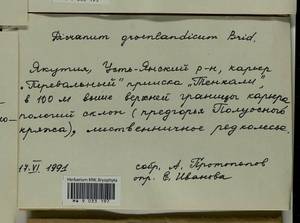 Dicranum groenlandicum Brid.
Якутия, Усть-Янский р-н, карьер
„Перевальный" прииска „Тенкели",
в 100 м выше верхней границы карьера
пологий склон (предгорья Полуосного
кряжа), лиственничное редколесье.
17.VI 1991 собр. А. Протопопов
опр. Е. Иванова
Herbarium MW, Bryophyta
MW 9 033 197